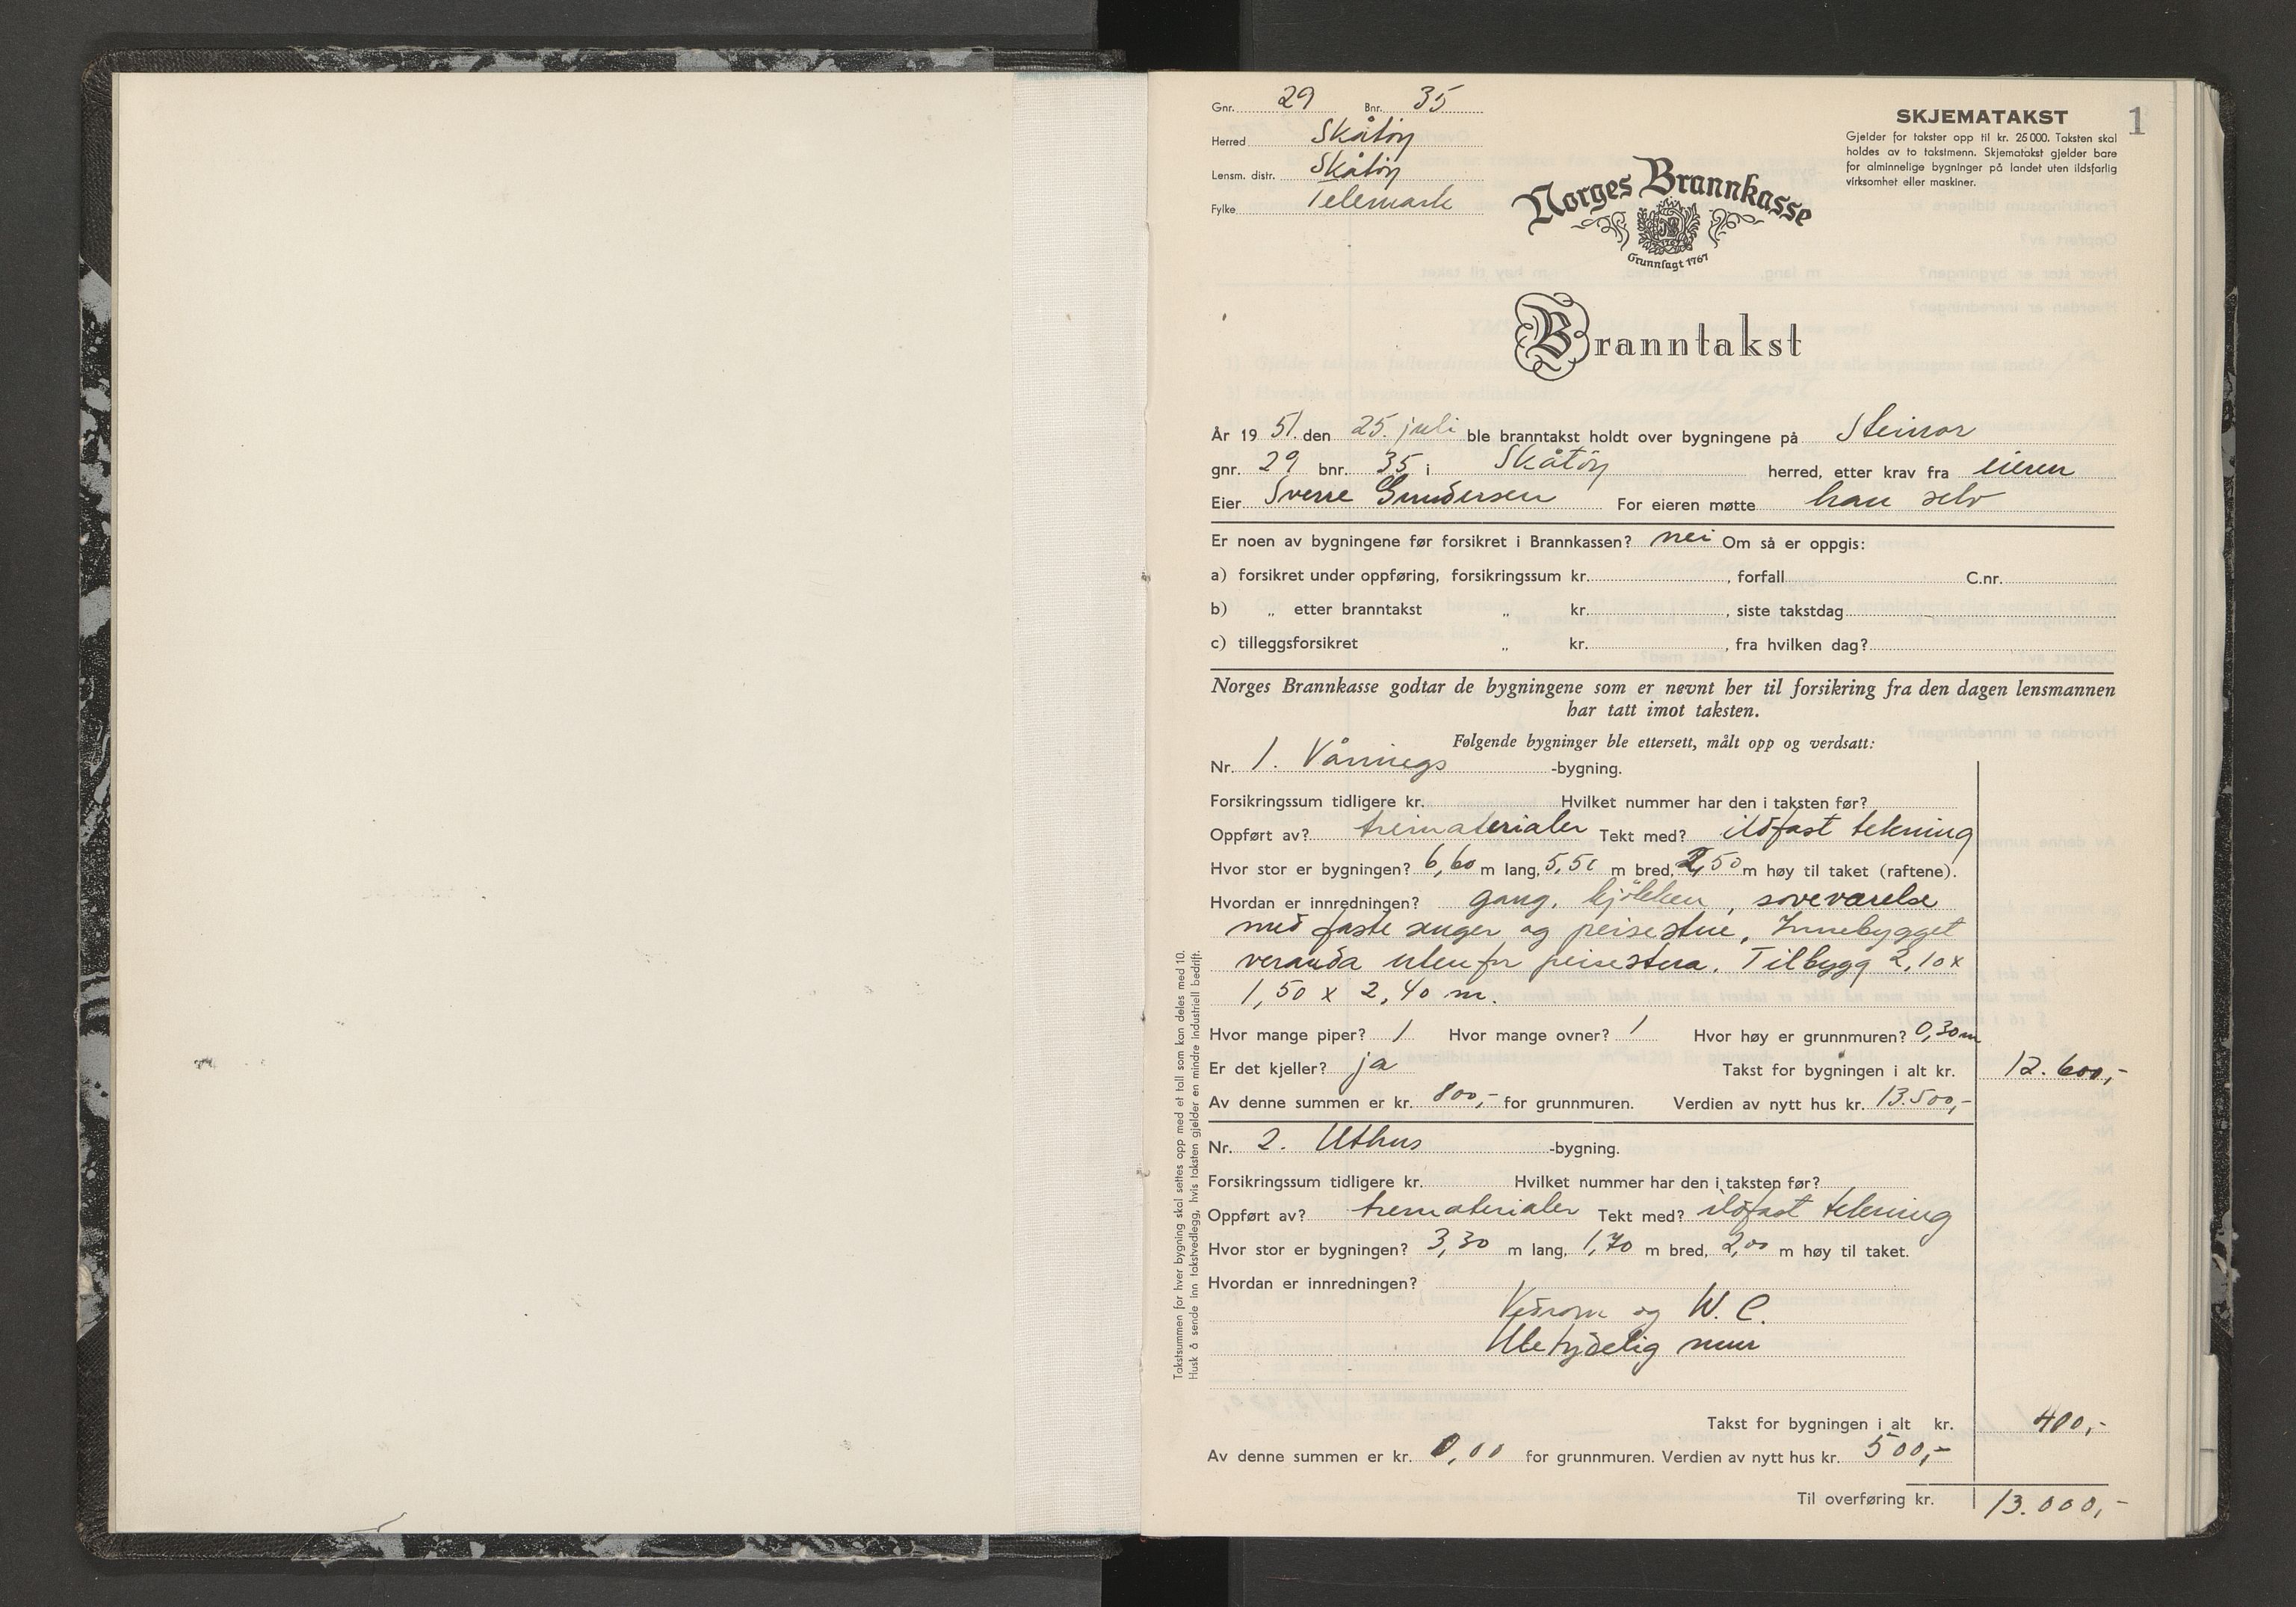 Gnr. 29 Bnr. 35
Herred Skåtöy
Lensm. distr. Skåtöy
Fylke Telemark
SKJEMATAKST 1
Gjelder for takster opp til kr. 25 000. Taksten skal
holdes av to takstmenn. Skjematakst gjelder bare
for alminnelige bygninger på landet uten ildsfarlig
virksomhet eller maskiner.
Norges Brannkasse
Grunnlagt 1767
Branntakst
År 19 51. den 25. juli ble branntakst holdt over bygningene på Steinar
gnr. 29 bnr. 35 i Skåtöy herred, etter krav fra eieren
Eier Sverre Gundersen For eieren møtte han selv
Er noen av bygningene før forsikret i Brannkassen? nei Om så er oppgis:
a) forsikret under oppføring, forsikringssum kr. , forfall C.nr.
b) „ etter branntakst „ kr. , siste takstdag
c) tilleggsforsikret „ kr. , fra hvilken dag?
Norges Brannkasse godtar de bygningene som er nevnt her til forsikring fra den dagen lensmannen
har tatt imot taksten.
Følgende bygninger ble ettersett, målt opp og verdsatt:
Nr. 1. Vånings -bygning.
Forsikringssum tidligere kr. Hvilket nummer har den i taksten før?
Oppført av? treimaterialer Tekt med? ildfast tekning
Hvor stor er bygningen? 6,60 m lang, 5,50 m bred, 2,50 m høy til taket (raftene).
Hvordan er innredningen? gang, kjökken, soveværelse
med faste senger og peisestue, Innebygget
veranda utenfor peisestua. Tilbygg 2,10 x
1,50 x 2,40 m.
Hvor mange piper? 1 Hvor mange ovner? 1 Hvor høy er grunnmuren? 0,30 m
Er det kjeller? ja Takst for bygningen i alt kr. 12.600,-
Av denne summen er kr. 800,- for grunnmuren. Verdien av nytt hus kr. 13.500,-
Nr. 2. Uthus -bygning.
Forsikringssum tidligere kr. Hvilket nummer har den i taksten før?
Oppført av? trematerialer Tekt med? ildfast tekning
Hvor stor er bygningen? 3,30 m lang, 1,70 m bred, 2,00 m høy til taket.
Hvordan er innredningen?
Vedrom og W.C.
Ubetydelig mur
Takst for bygningen i alt kr. 400,-
Av denne summen er kr. 0,00 for grunnmuren. Verdien av nytt hus kr. 500,-
Til overføring kr. 13.000,-
Takstsummen for hver bygning skal settes opp med et tall som kan deles med 10.
Husk å sende inn takstvedlegg, hvis taksten gjelder en mindre industriell bedrift.